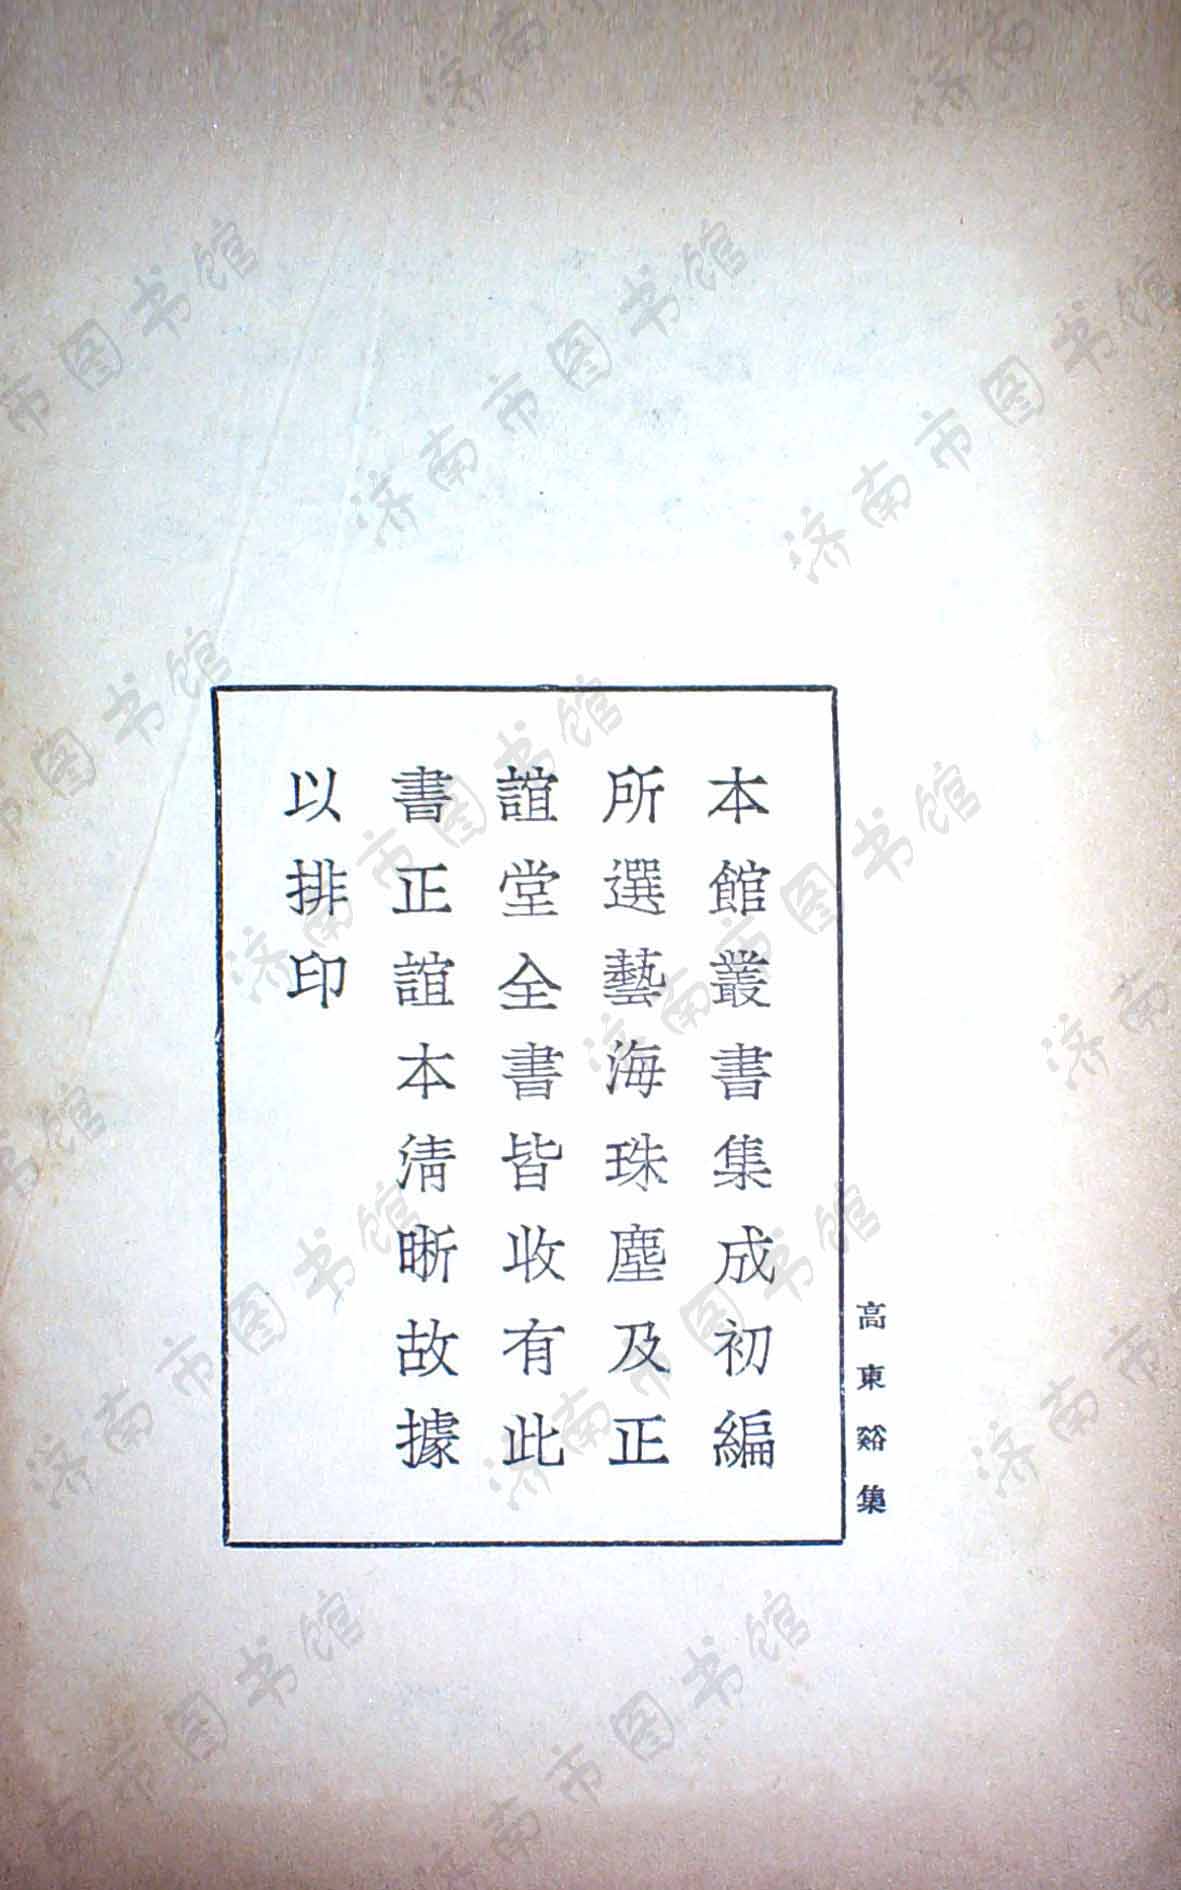 高東谿集
本館叢書集成初編
所選藝海珠塵及正
誼堂全書皆收有此
書正誼本清晰故據
以排印
济南市图书馆